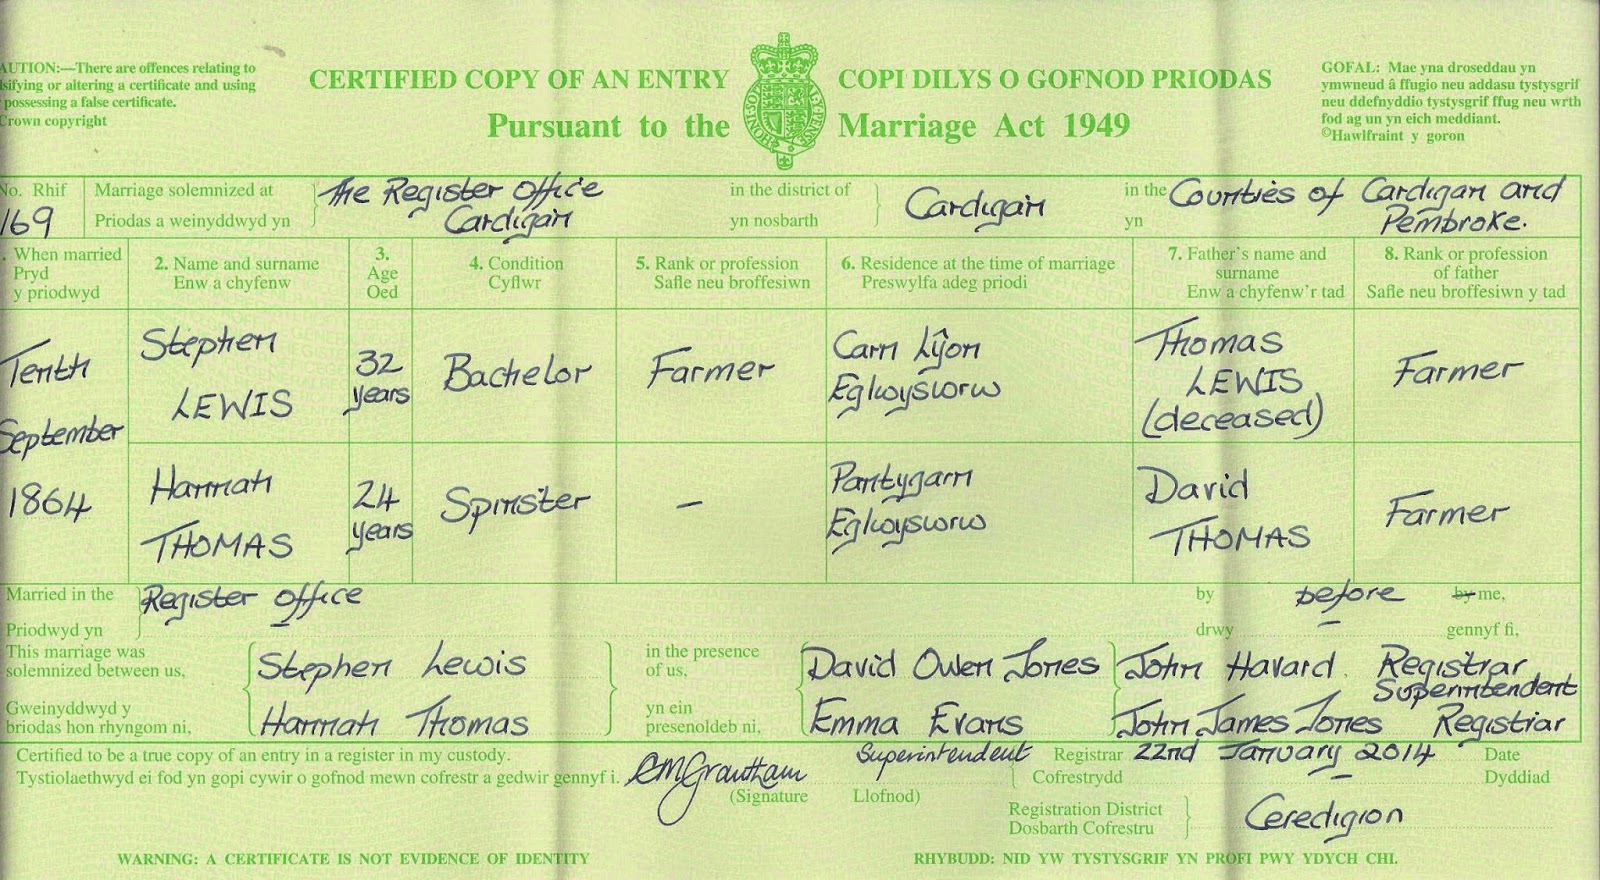 AUTION:—There are offences relating to
lsifying or altering a certificate and using
possessing a false certificate.
Crown copyright
CERTIFIED COPY OF AN ENTRY
Pursuant to the
COPI DILYS O GOFNOD PRIODAS
Marriage Act 1949
GOFAL: Mae yna droseddau yn
ymwneud â ffugio neu addasu tystysgrif
neu ddefnyddio tystysgrif ffug neu wrth
fod ag un yn eich meddiant.
©Hawlfraint y goron
No. Rhif
169
Marriage solemnized at
Priodas a weinyddwyd yn
The Register Office
Cardigan
in the district of
yn nosbarth
Cardigan
in the
yn
Counties of Cardigan and
Pembroke.
. When married
Pryd
y priodwyd
2. Name and surname
Enw a chyfenw
3.
Age
Oed
4. Condition
Cyflwr
5. Rank or profession
Safle neu broffesiwn
6. Residence at the time of marriage
Preswylfa adeg priodi
7. Father's name and
surname
Enw a chyfenw'r tad
8. Rank or profession
of father
Safle neu broffesiwn y tad
Tenth
September
1864
Stephen
LEWIS
32
years
Bachelor
Farmer
Carn Llŷon
Eglwyswrw
Thomas
LEWIS
(deceased)
Farmer
Hannah
THOMAS
24
years
Spinster
–
Pantygarn
Eglwyswrw
David
THOMAS
Farmer
Married in the
Priodwyd yn
Register Office
by
drwy
before
by me,
gennyf fi,
This marriage was
solemnized between us,
Gweinyddwyd y
briodas hon rhyngom ni,
Stephen Lewis
Hannah Thomas
in the presence
of us,
yn ein
presenoldeb ni,
David Owen Jones
Emma Evans
John Havard Registrar
Superintendent
John James Jones Registrar
Certified to be a true copy of an entry in a register in my custody.
Tystiolaethwyd ei fod yn gopi cywir o gofnod mewn cofrestr a gedwir gennyf i.
CMGrantham
(Signature Llofnod)
Superintendent
Registrar
Cofrestrydd
22nd January 2014
Date
Dyddiad
Registration District
Dosbarth Cofrestru
Ceredigion
WARNING: A CERTIFICATE IS NOT EVIDENCE OF IDENTITY
RHYBUDD: NID YW TYSTYSGRIF YN PROFI PWY YDYCH CHI.